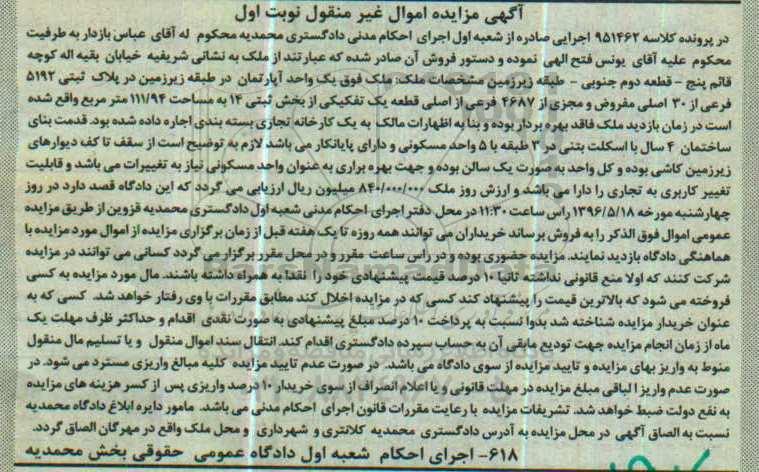 آگهی مزایده اموال غیر منقول نوبت اول
در پرونده کلاسه ۹۵۱۴۶۲ اجرایی صادره از شعبه اول اجرای احکام مدنی دادگستری محمدیه محکوم له آقای عباس بازدار به طرفیت
محکوم علیه آقای یونس فتح الهی نموده و دستور فروش آن صادر شده که عبارتند از ملک به نشانی شریفیه خیابان بقیه اله کوچه
قائم پنج - قطعه دوم جنوبی - طبقه زیرزمین مشخصات ملک: ملک فوق یک واحد آپارتمان در طبقه زیرزمین در پلاک ثبتی ۵۱۹۲
فرعی از ۳۰ اصلی مفروض و مجزی از ۴۶۸۷ فرعی از اصلی قطعه یک تفکیکی از بخش ثبتی ۱۴ به مساحت ۱۱۱/۹۴ متر مربع واقع شده
است در زمان بازدید ملک فاقد بهره بردار بوده و بنا به اظهارات مالک به یک کارخانه تجاری بسته بندی اجاره داده شده بود. قدمت بنای
ساختمان ۴ سال با اسکلت بتنی در ۳ طبقه با ۵ واحد مسکونی و دارای پایانکار می باشد لازم به توضیح است از سقف تا کف دیوارهای
زیرزمین کاشی بوده و کل واحد به صورت یک سالن بوده و جهت بهره براری به عنوان واحد مسکونی نیاز به تغییرات می باشد و قابلیت
تغییر کاربری به تجاری را دارا می باشد و ارزش روز ملک ۸۴۰/۰۰۰/۰۰۰ میلیون ریال ارزیابی می گردد که این دادگاه قصد دارد در روز
چهارشنبه مورخه ۱۳۹۶/۵/۱۸ راس ساعت ۱۱:۳۰ در محل دفتر اجرای احکام مدنی شعبه اول دادگستری محمدیه قزوین از طریق مزایده
عمومی اموال فوق الذکر را به فروش برساند خریداران می توانند همه روزه تا یک هفته قبل از زمان برگزاری مزایده از اموال مورد مزایده با
هماهنگی دادگاه بازدید نمایند. مزایده حضوری بوده و در راس ساعت مقرر و در محل مقرر برگزار می گردد کسانی می توانند در مزایده
شرکت کنند که اولا منع قانونی نداشته ثانیا ۱۰ درصد قیمت پیشنهادی خود را نقدا به همراه داشته باشند. مال مورد مزایده به کسی
فروخته می شود که بالاترین قیمت را پیشنهاد کند کسی که در مزایده اخلال کند مطابق مقررات با وی رفتار خواهد شد. کسی که به
عنوان خریدار مزایده شناخته شد بدوا نسبت به پرداخت ۱۰ درصد مبلغ پیشنهادی به صورت نقدی اقدام و حداکثر ظرف مهلت یک
ماه از زمان انجام مزایده جهت تودیع مابقی آن به حساب سپرده دادگستری اقدام کند. انتقال سند اموال منقول و یا تسلیم مال منقول
منوط به واریز بهای مزایده و تایید مزایده از سوی دادگاه می باشد. در صورت عدم تایید مزایده کلیه مبالغ واریزی مسترد می شود. در
صورت عدم واریز ا لباقی مبلغ مزایده در مهلت قانونی و یا اعلام انصراف از سوی خریدار ۱۰ درصد واریزی پس از کسر هزینه های مزایده
به نفع دولت ضبط خواهد شد. تشریفات مزایده با رعایت مقررات قانون اجرای احکام مدنی می باشد. مامور دایره ابلاغ دادگاه محمدیه
نسبت به الصاق آگهی در محل مزایده به آدرس دادگستری محمدیه کلانتری و شهرداری و محل ملک واقع در مهرگان الصاق گردد.
۶۱۸- اجرای احکام شعبه اول دادگاه عمومی حقوقی بخش محمدیه